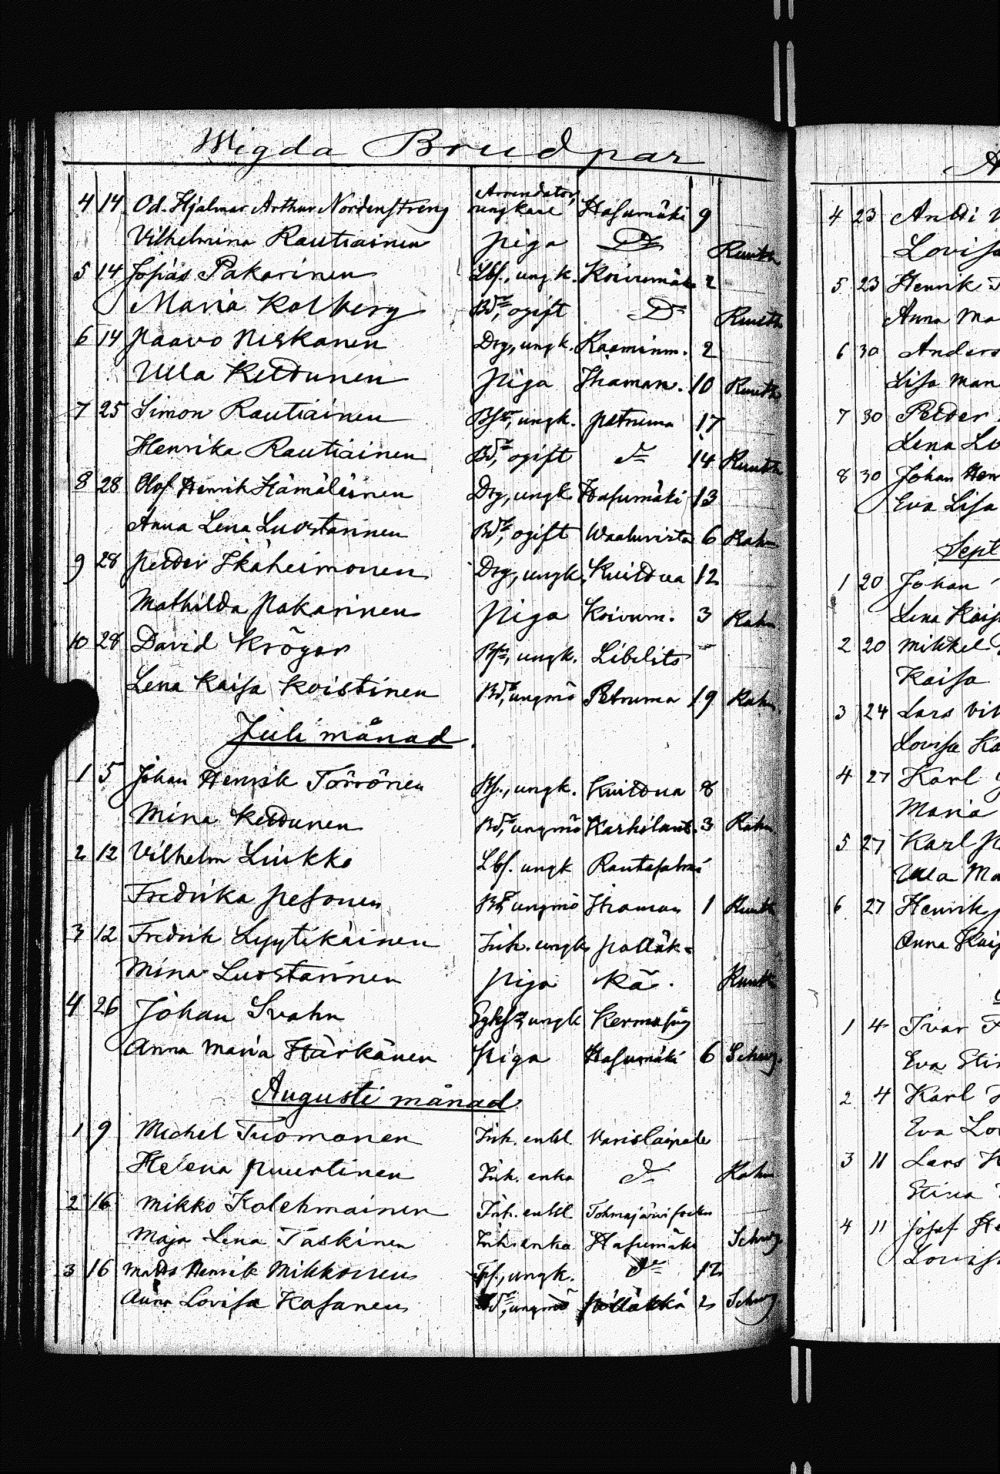 Wigda Brudpar
4 14 Od. Hjalmar Arthur Nordenstreng Arrendator, ungkarl Hasumäki 9
Vilhelmina Rautiainen piga Do Runth
5 14 Josias Pakarinen Lbf., ungk. Koivumäk 2
Maria Kolberg Bdr, ogift Do Runth
6 14 Paavo Niskanen Drg, ungk. Raaminm. 2
Ulla Kettunen piga Ihaman. 10 Runth
7 25 Simon Rautiainen Bfr, ungk. Petruma 17
Henrika Rautiainen Bdr, ogift do 14 Runth
8 28 Olof Henrik Hämäläinen Drg, ungk. Hasumäki 13
Anna Lena Luostarinen Bdr, ogift Waaluvirta 6 Rahn
9 28 Petter Ikäheimonen Drg, ungk. Kuittua 12
Mathilda Pakarinen piga Koivum. 3 Rahn
10 28 David Kröger ungk. Libelits
Lena Kaisa Koistinen Bdr, ungmö Petruma 19 Rahn
Juli månad
1 5 Johan Henrik Törrönen Bf., ungk. Kuittua 8
Mina Kettunen Bdr, ungmö Karhilant. 3 Rahn
2 12 Vilhelm Liukko Lbf. ungk Rautasalmi
Fredrika Pesonen Bdr ungmö Ihaman 1 Runth
3 12 Fredrik Lyytikäinen Inh. ungk pollak=
Mina Luostarinen piga kä. Runth
4 26 Johan Svahn ungk Kermasöy
Anna Maria Härkänen piga Hasumäki 6
Augusti månad
1 9 Michel Tuomanen Inh. enkl Varislaipale
Helena Puurtinen Inh. enka do Rahn
2 16 Mikko Kolehmainen Inh. enkl Tohmajärvi
Maja Lena Taskinen Inh. enka Hasumäki
3 16 Matts Henrik Mikkonen ungk. do 12
Anna Lovisa Kasanen Bdr, ungmö Pölläkkä 2
4 23 Antti
Lovisa
5 23 Henrik
Anna Ma
6 30 Anders
Lisa Man
7 30 Petter
Lena Lo
8 30 Johan Hen
Eva Lisa
Sept
1 20 Johan
Lena Kaisa
2 20 Mikkel
Kaisa
3 24 Lars Vil
Lovisa Ka
4 27 Karl
Maria
5 27 Karl
Ulla Ma
6 27 Henrik
Anna Kaisa
1 4 Ivar
Eva Stin
2 4 Karl
Eva Lov
3 11 Lars
Stina
4 11 Josef He
Lovisa